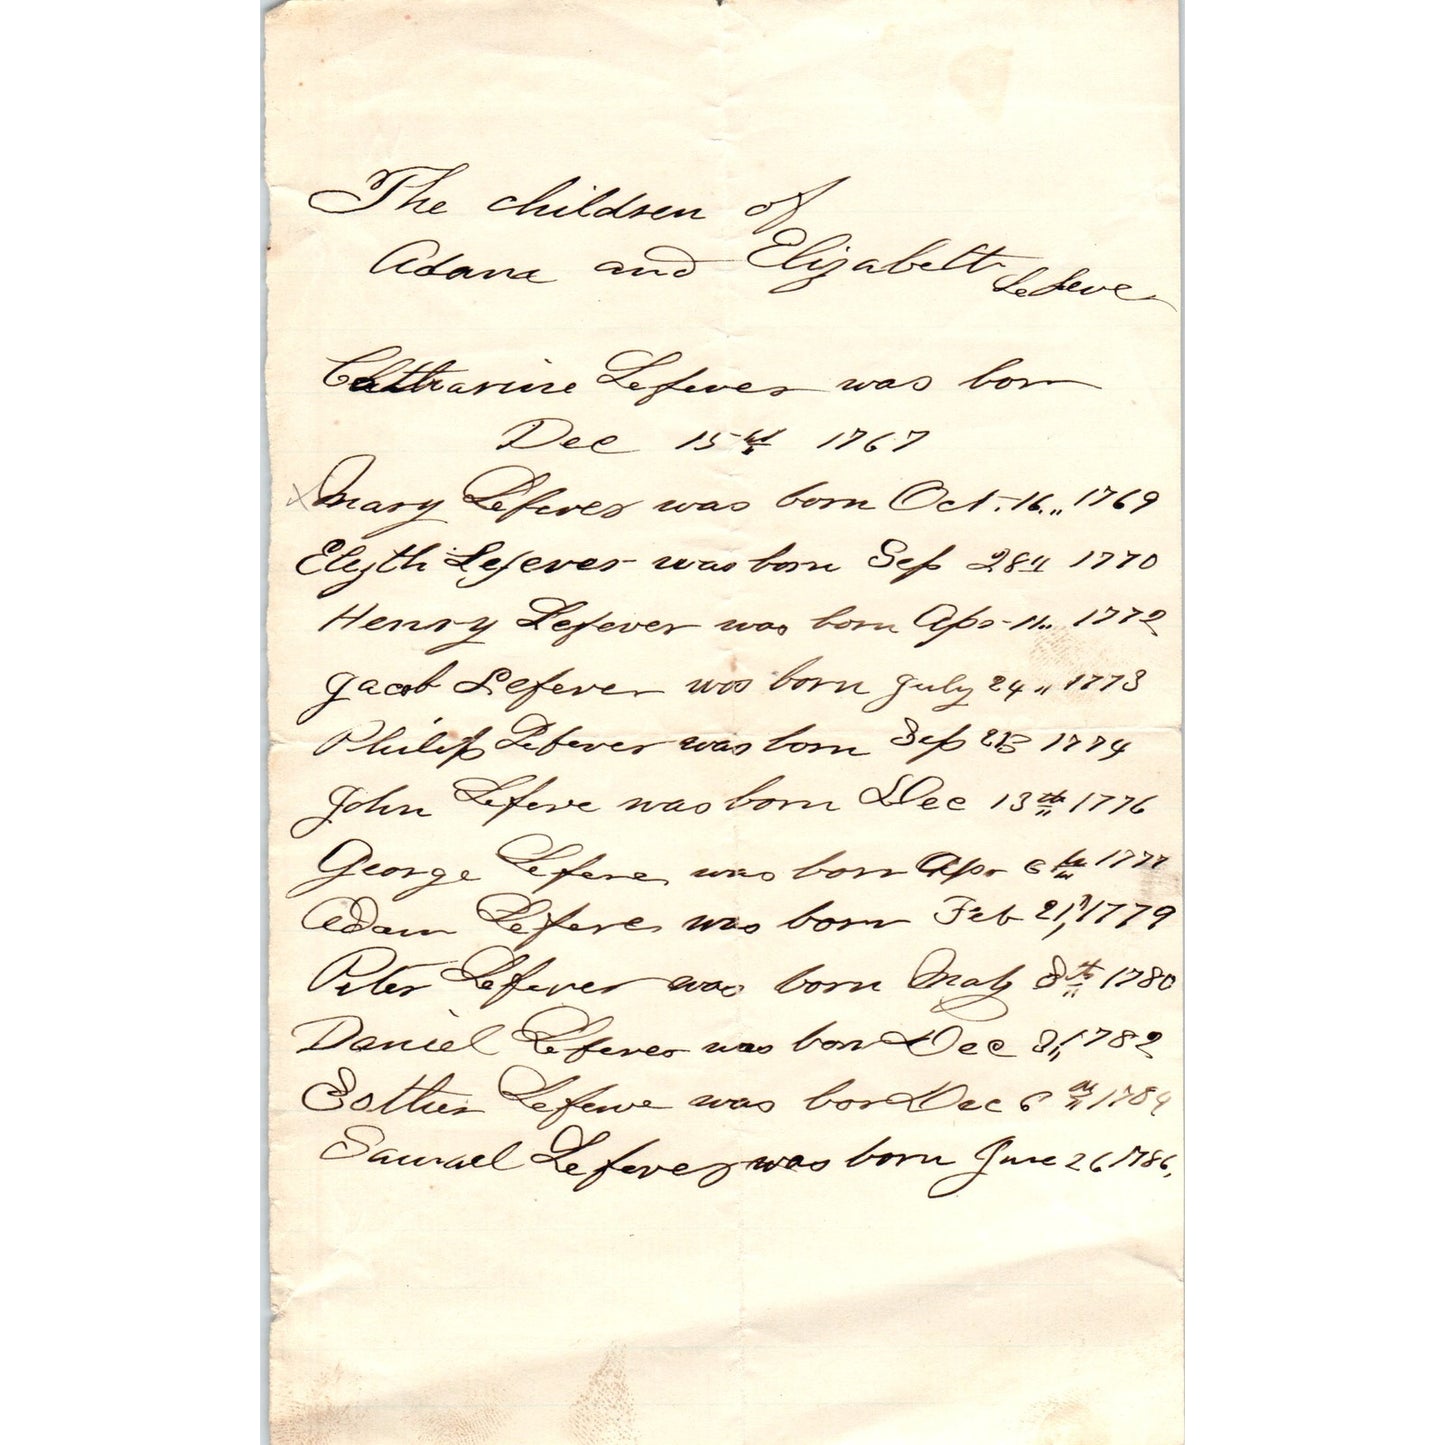 The children of
Adam and Elizabeth Lefever
Catharine Lefever was born
Dec 15th 1767
Mary Lefever was born Oct. 16,, 1769
Elizth Lefever was born Sep 28th 1770
Henry Lefever was born Apr 11,, 1772
Jacob Lefever was born July 24,, 1773
Philip Lefever was born Sep 1774
John Lefeve was born Dec 13th 1776
George Lefeve was born Apr 6th 1777
Adam Lefeve was born Feb 21, 1779
Peter Lefever was born May 8th 1780
Daniel Lefever was born Dec 8,, 1782
Esther Lefeve was born Dec 6th 1784
Samuel Lefever was born June 26 1786,